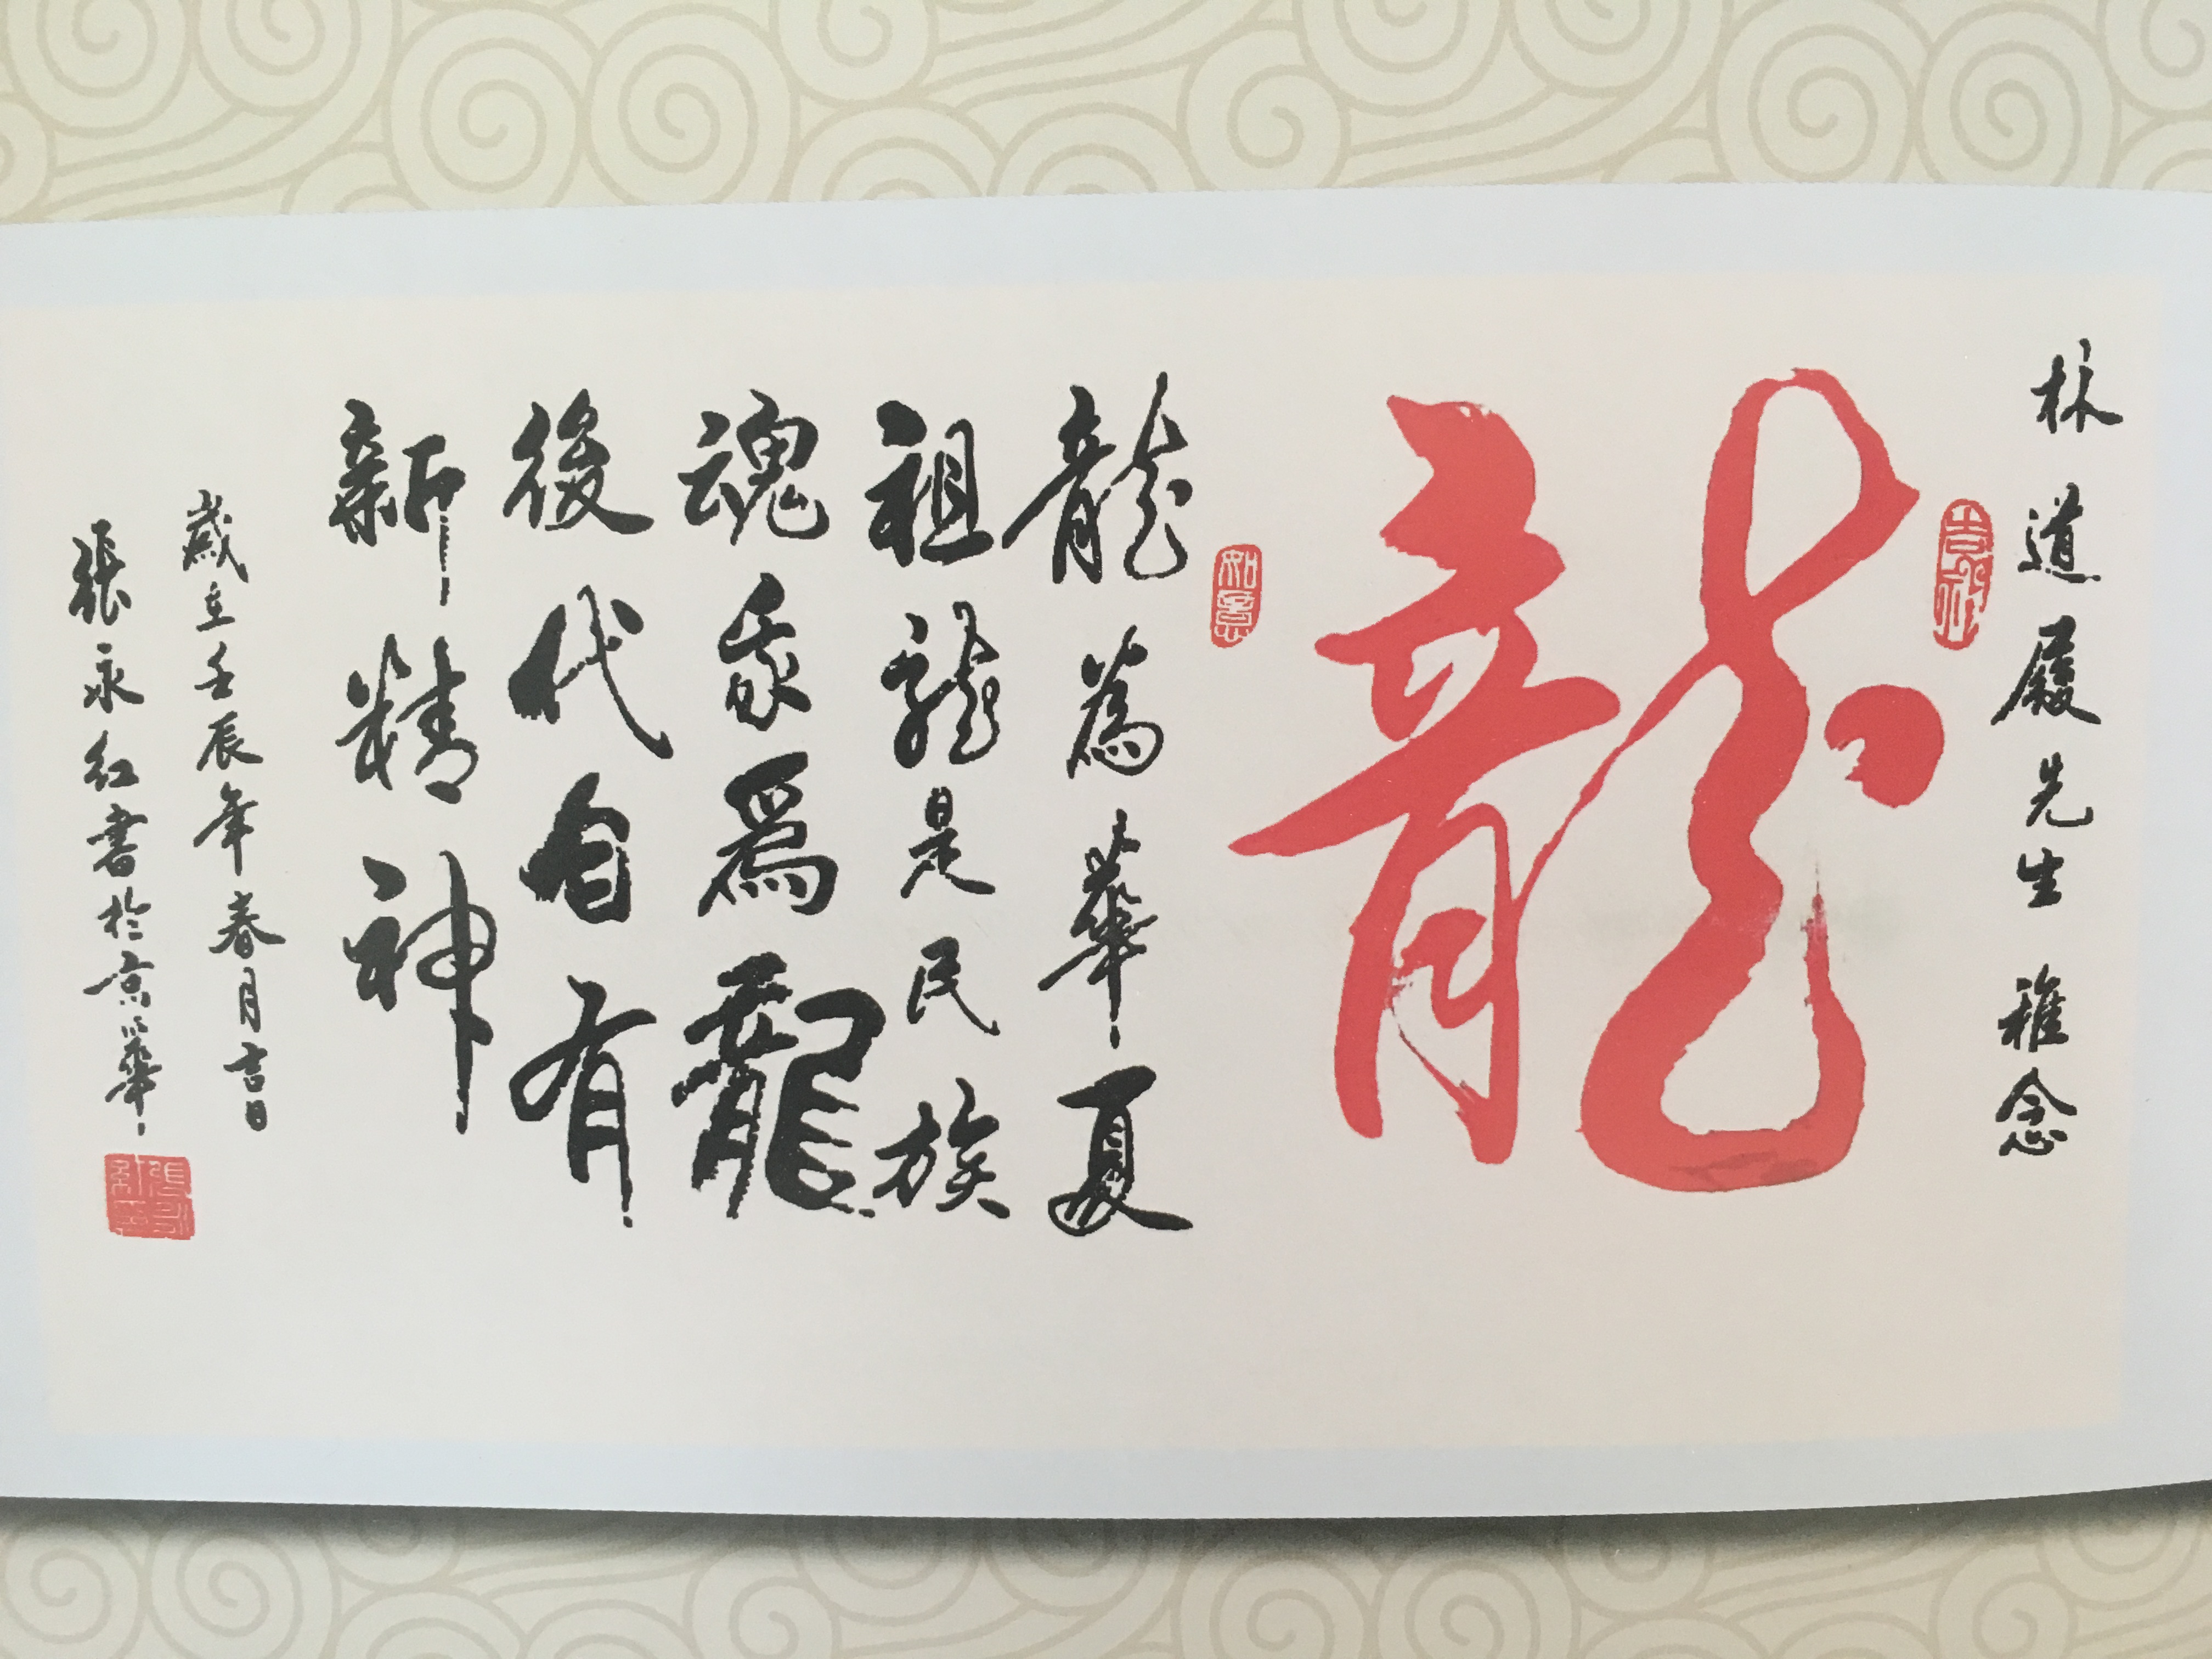 林道履先生雅念
吉祥
龍
如意
龍為華夏
祖龍是民族
魂我爲龍
後代自有
新精神
歲在壬辰年春月吉日
張永紅書於京華